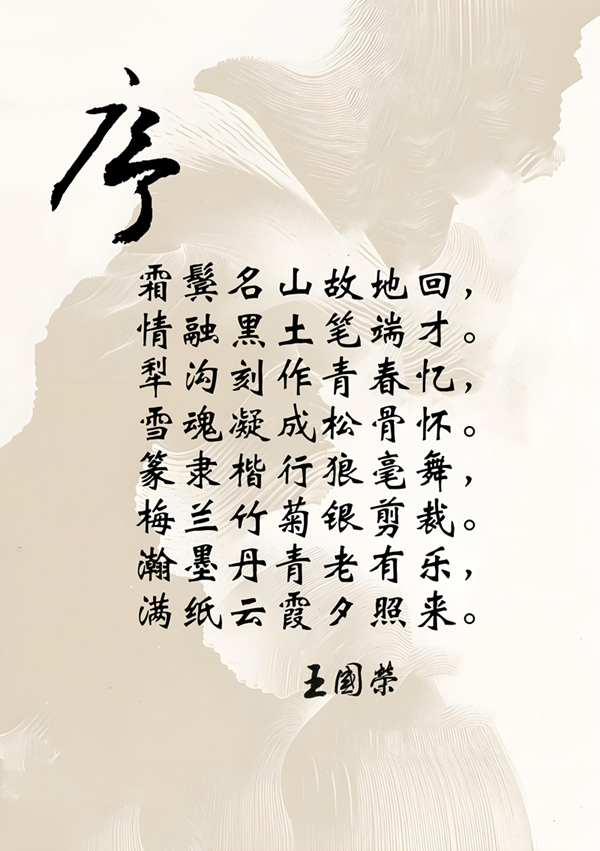 序
霜鬓名山故地回，
情融黑土笔端才。
犁沟刻作青春忆，
雪魂凝成松骨怀。
篆隶楷行狼毫舞，
梅兰竹菊银剪裁。
瀚墨丹青老有乐，
满纸云霞夕照来。
王國榮